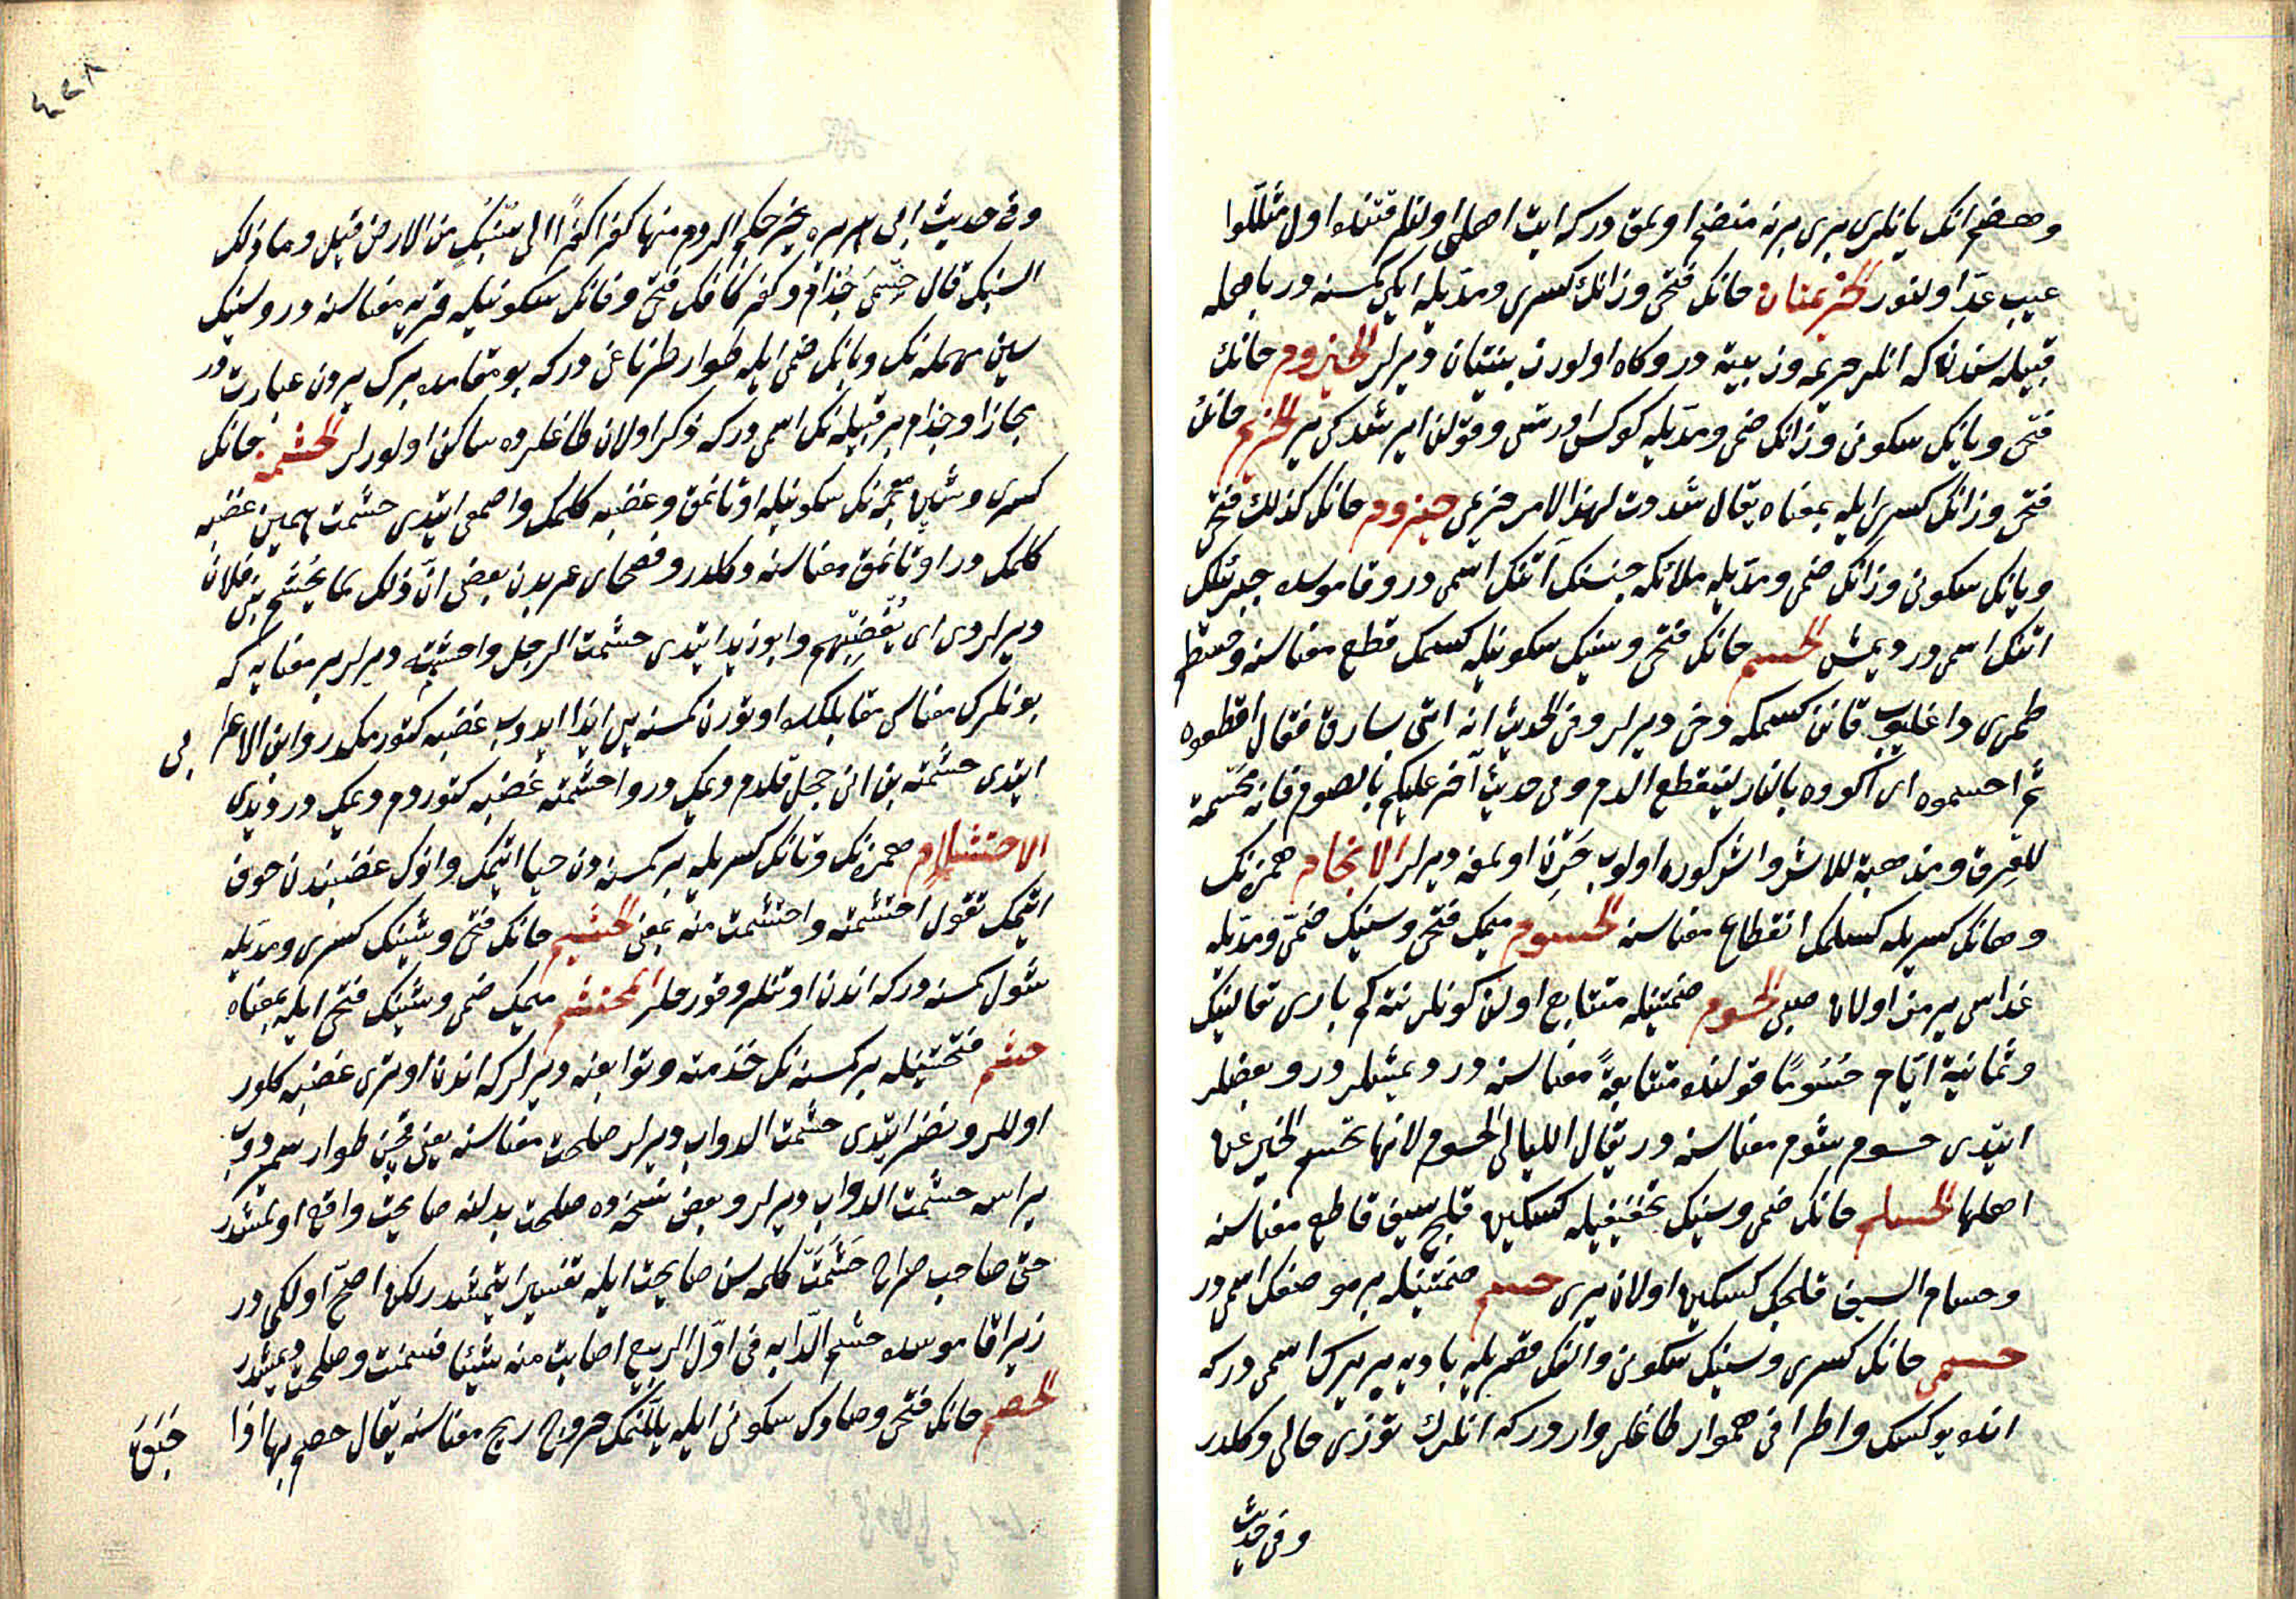 وهضم انك يانلری بری برنه منضم اولمق درکه ایت اهلی اولنلر قتنده اول مثللوا
عیب عدّ اولنور الحزیمتان حانك فتحی وزانك کسری ومدّیله ایکی کمسنه در باهله
قبیله سندن که انلر حزیمه وزبینة در وکاه اولور زبینتان دیرلر الحیزوم حانك
فتحی ویانك سکونی وزانك ضمی ومدّیله کوکس اورتسی وقولن ایرشدکی یر الحزیم حانك
فتحی وزانك کسری ایله بمعناه یقال شددت لهذا الامر حزیمی حیزوم حانك کذلك فتحی
ویانك سکونی وزانك ضمی ومدّیله ملائکه جنسنك آتنك اسمی در وقاموسده جبرئلك
اتنك اسمی در دیمش الحسم حانك فتحی وسینك سکونیله کسمك قطع معناسنه
طمری داغلیوب قانن کسمکه دخی دیرلر وفی الحدیث انه اتی بسارق فقال اقطعوه
ثم احسموه ای اکووه بالنار لینقطع الدم وفی حدیث آخر علیکم بالصوم فانه محسمة
للعرق ومذهبة للاشر واشر کوره اولوب اولمغه دیرلر الانحسام همزنك
وحانك کسریله کسلمك انقطاع معناسنه المحسوم میمك فتحی وسینك ضمّی ومدّیله
غداسی یرمز اولان صبی الحسوم ضمتینله متتابع اولن کونلر نته کم باری تعالینك
وثمانیة ایّام حسُومًا قولنده متتابعةً معناسنه در دیمشلر در وبعضلر
ایتدی حسوم شوم معناسنه در یقال اللیالی الحسوم لانها تحسم الخیر عن
اهلها الحسام حانك ضمی وسینك تخفیفیله کسکین قلیج سیف قاطع معناسنه
وحسام السیف قلیجك کسکین اولان یری حسم ضمتینله بر موضعك اسمی در
حسمی حانك کسری وسینك سکونی والفك قصریله بادیه ده بر یرك اسمی درکه
انده یوکسك واطرافی هموار طاغلر وار درکه انلرك توزی خالی دکلدر
وفی حدیث
٤٢٨
وفی حدیث ابی هریره یخرجکم الروم منها کفرا کفرًا الی سُنبكٍ من الارض قیل وما ذلك
السنبك قال حِسْمَی جُذام وکفر کافك فتحی وفانك سکونیله قریه معناسنه در وسنبك
سین مهمله نك وبانك ضمی ایله طوار طرناغی درکه بو مقامده بر یردن عبارت در
مجازا وجذام بر قبیله نك اسمی درکه ذکر اولان طاغلرده ساکن اولورلر الحشمة حانك
کسری وشین معجمه نك سکونیله اوتانمق وغضبه کلمك واصمعی ایتدی حشمت همین غضبه
کلمك در اوتانمق معناسنه دکلدر وفصحای عربدن بعضی انّ ذلك لما یُحشم بنی فلان
دیرلردی ای یُغضبهم وابو زید ایتدی حشمت الرجل واحشمته دیرلر بر معنایه که
بونلرك معناسی مقابلکده اوتورن کمسنه یی ایذا ایدوب غضبه کتورمکدر وابن الاعرابی
ایتدی حشمته بن انی خجل قلدم دیمك در واحشمته غضبه کتوردم دیمك در دیدی
الاحتشام همزنك وتانك کسریله بر کمسنه دن حیا ایتمك وانوك غضبندن خوف
ایتمك تقول احتشمته واحتشمت منه بمعنی الحشیم حانك فتحی وشینك کسری ومدّیله
شول کمسنه درکه اندن اوتنلر وقورقلر المحتشم میمك ضمی وشینك فتحی ایله بمعناه
حشم فتحتینله بر کمسنه نك خذمته وتوابعنه دیرلرکه اندن اوتری غضبه کلور
اوللر ونضر ایتدی حشمت الدواب دیرلر صلحت معناسنه یعنی قچن طوار سمروب
یراسه حشمت الدواب دیرلر وبعض نسخه ده صلحت بدلنه صایحت واقع اولمشدر
حتی صاحب صراح حَشَمَتْ کلمه سن صایحت ایله تفسیر ایتمشدر لکن اصحّ اولکی در
زیرا قاموسده حشم الدّابه فی اوّل الربیع اصابت منه شیئا فسمنت وصلحت دیمشدر
الحصم حانك فتحی وصادك سکونی ایله یللنمك خروج ریح معناسنه یقال حصم بها اذا
حَبَقَ